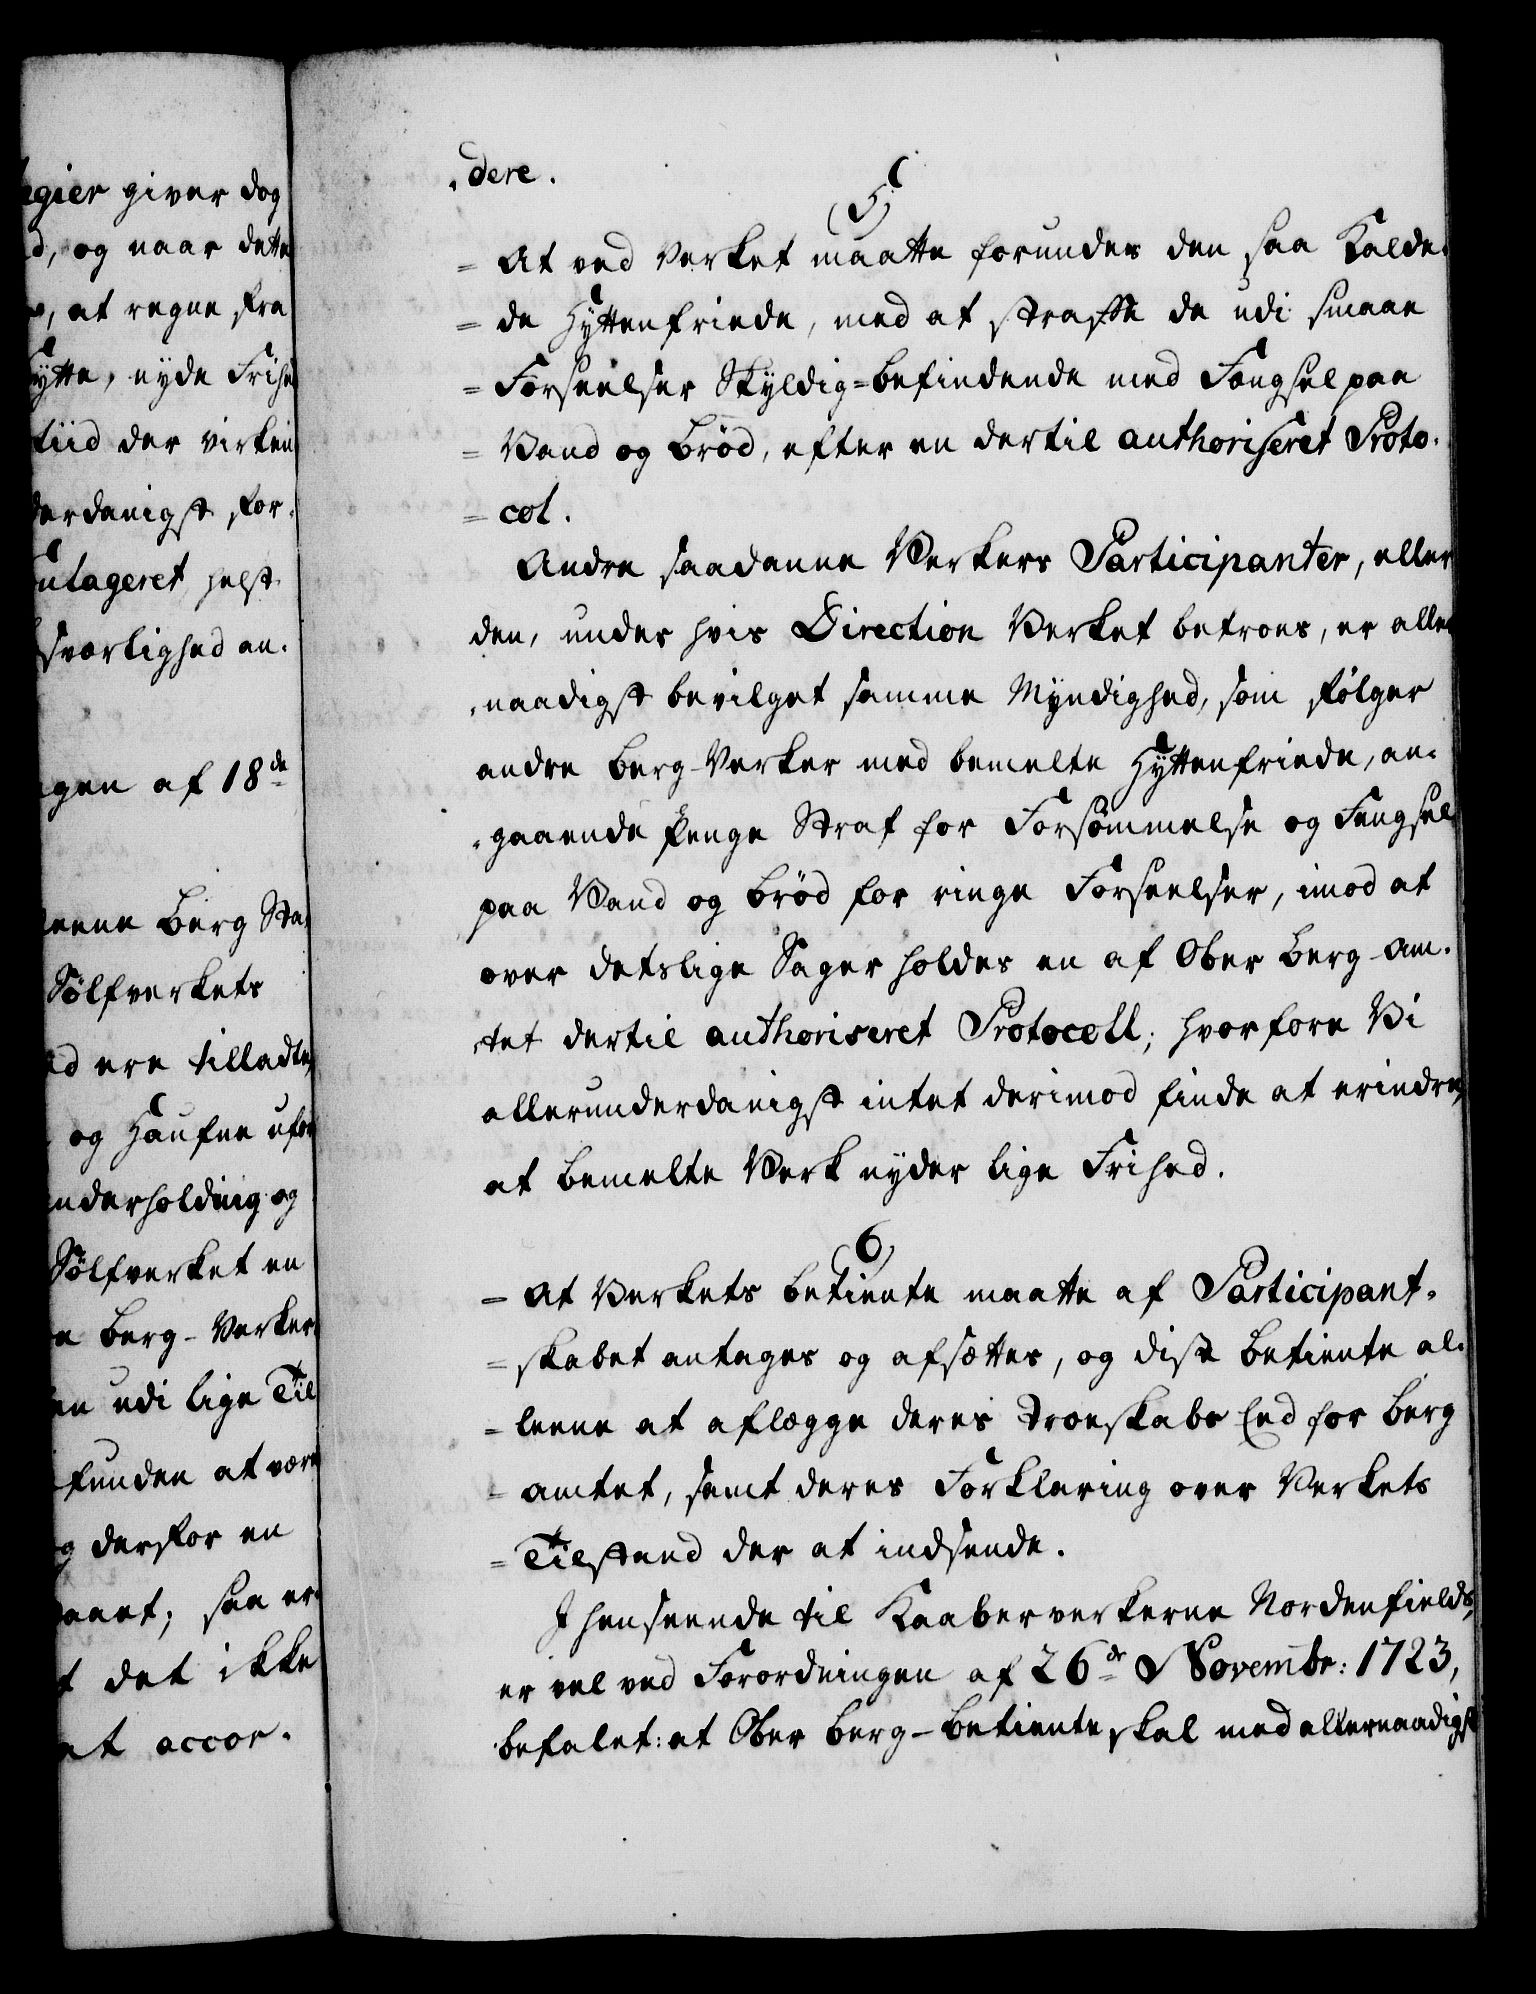 gier giver dog
d, og naar dette
, at regne fra
ytte, nyde Frihe
tiid der virkein
derdanigst for-
utageret helst
sværlighed an-
gen af 18de
eene Berg Sta
Sølfverkets
d ere tilladte
og Haufne ufor
nderholding og
Sølfverket en
e Berg-Verker
en udi lige Til
funden at være
g derfor en
aaet; saa er
t det ikke
at accor-
-dere.
5
= At ved Verket maatte forundes den saa Kalde-
= de Hyttenfriede, med at straffe de udi smaae
= Forseelser Skyldig-befindende med Fængsel paa
= Vand og Brød, efter en dertil authoriseret Proto-
= col.
Andre saadanne Verkers Participanter, eller
den, under hvis Direction Verket betroes, er aller
-naadigst bevilget samme Myndighed, som følger
andre Berg-Verker med bemelte Hyttenfriede, an-
-gaaende Penge Straf for Forsømmelse og Fengsel
paa Vand og Brød for ringe Forseelser, imod at
over detslige Sager holdes en af Ober Berg Am-
-tet dertil authoriseret Protocoll; hvorfore Vi
allerunderdanigst intet derimod finde at erindre,
at bemelte Verk nyder lige Frihed.
6
= At Verkets betiente maatte af Participant-
= skabet antages og afsættes, og disse betiente al-
= leene at aflægge deres Troeskabs Eed for Berg
= amtet, samt deres Forklaring over Verkets
= Tilstand der at indsende.
I henseende til Kaaberverkerne Nordenfields,
er vel ved Forordningen af 26de Novembr: 1723,
befalet: at Ober Berg-betiente skal med allernaadigst